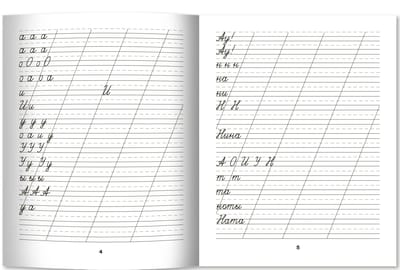 а а а
а а а
о О о О
о а о а
и
И
И и
у у у
о а и у
У У У
У у У у
ы ы ы
А А А
у а
4
Ау!
Ау!
н н н
на
ни
Н Н
Нина
А О И У Н
т т
та
ноты
Ната
5